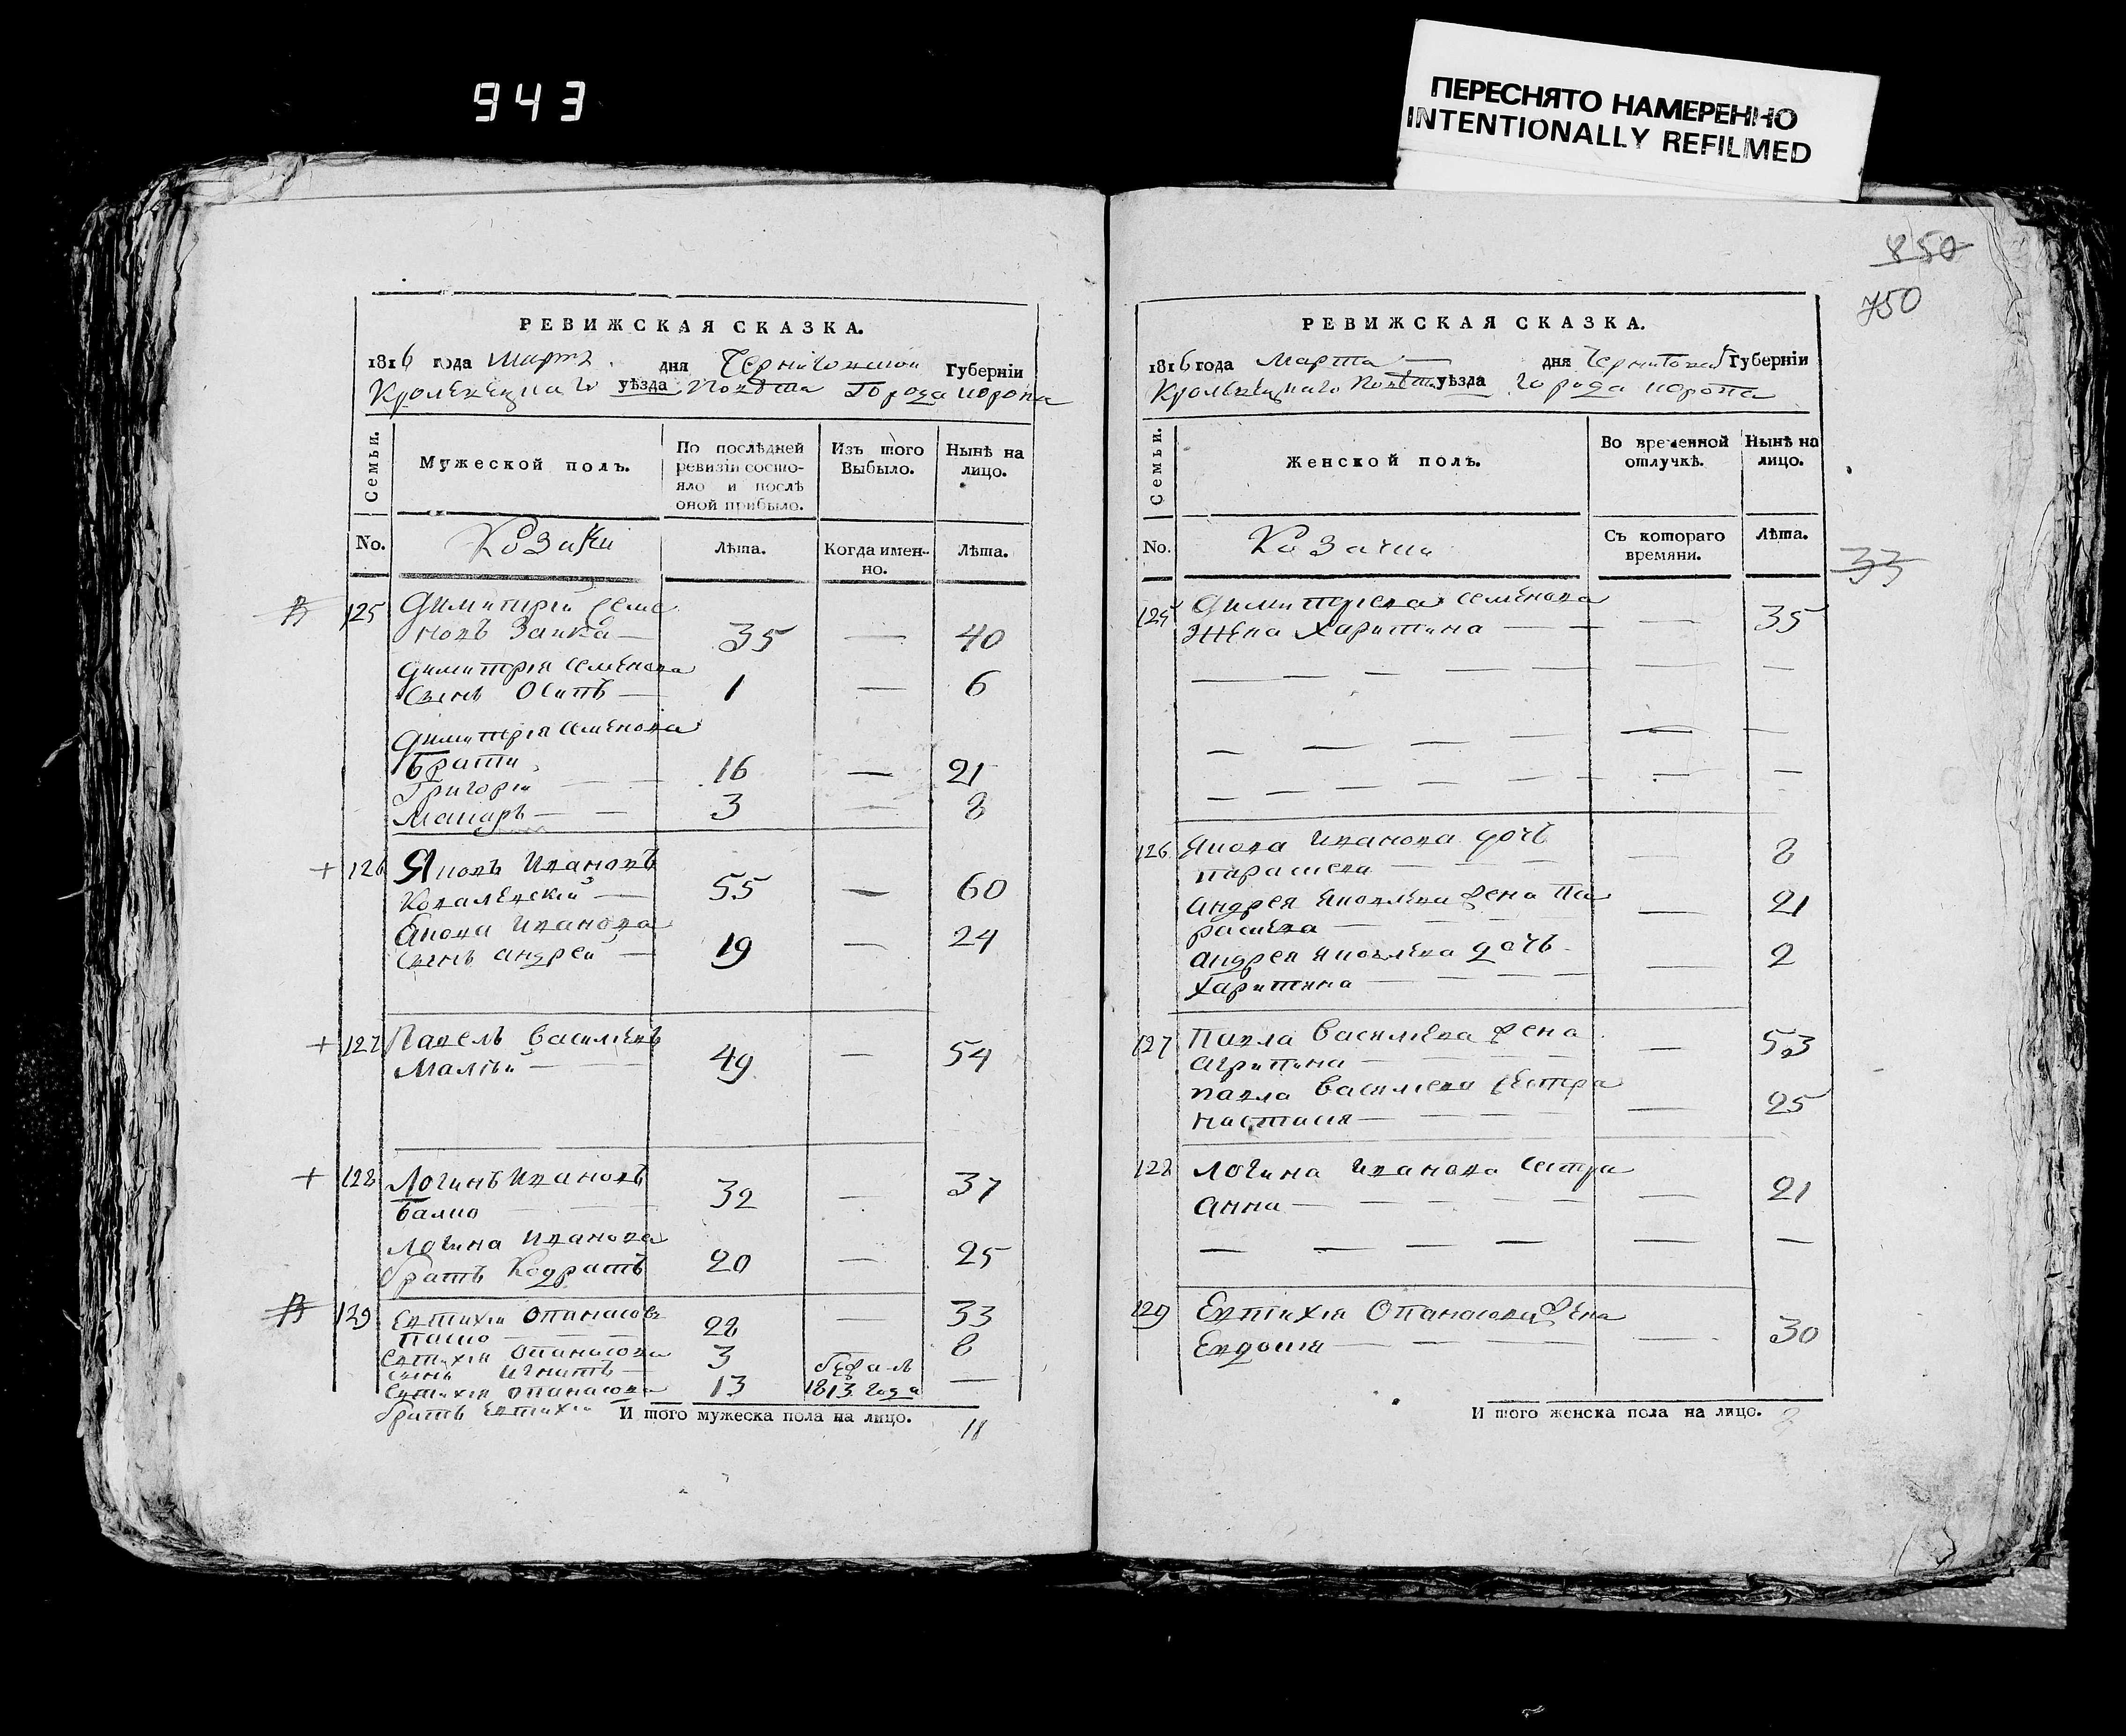 943
ПЕРЕСНЯТО НАМЕРЕННО
INTENTIONALLY REFILMED
850
750
РЕВИЖСКАЯ СКАЗКА.
1816 года Марта дня Черниговской Губерніи
Кролевецкаго уѣзда Повѣта Города Коропа
Семьи.
Мужеской полъ.
По послѣдней ревизіи состо-
яло и послѣ
оной прибыло.
Изъ того
Выбыло.
Нынѣ на
лицо.
No.
Козаки
Лѣта.
Когда имен-
но.
Лѣта.
125 Димитрій Семе
новъ Заика — 35 — 40
Димитрія Семенова
сынъ Осипъ — 1 — 6
Димитрія Семенова
Брати
Григорій — 16 — 21
Макаръ — — 3 — 8
+ 126 Яковъ Ивановъ
Ковалевскій — 55 — 60
Якова Иванова
сынъ Андрей — 19 — 24
+ 127 Павелъ Василіевъ
Малѣй — 49 — 54
+ 128 Логинъ Ивановъ
Балко 32 — 37
Логина Иванова
братъ Кодратъ 20 — 25
129 Евтихій Опанасовъ
Пашко — 28 — 33
Евтихія Опанасова
сынъ Игнатъ — 3 — 8
Евтихія Опанасова
братъ Евтихій 13 бѣжалъ
1813 года —
И того мужеска пола на лицо. 11
РЕВИЖСКАЯ СКАЗКА.
1816 года Марта — дня Чернигов Губерніи
Кролевецкаго Повѣта уѣзда города Коропа
Семьи.
Женской полъ.
Во временной
отлучкѣ.
Нынѣ на
лицо.
No.
Козачки
Съ котораго
времяни.
Лѣта.
33
125 Димитрева Семенова
Жена Харитина — — — 35
126 Якова Иванова дочь
Парасковия — — — 8
Андрея Яковлева жена Па
раскева — — 21
Андрея Яковлева дочь
Харитина — — 2
127 Павла Василіева жена
Агрипина — — 53
Павла Василіева сестра
Настасія — — 25
128 Логина Иванова сестра
Анна — — — 21
129 Евтихія Опанасова жена
Евдокія — — — 30
И того женска пола на лицо. 8